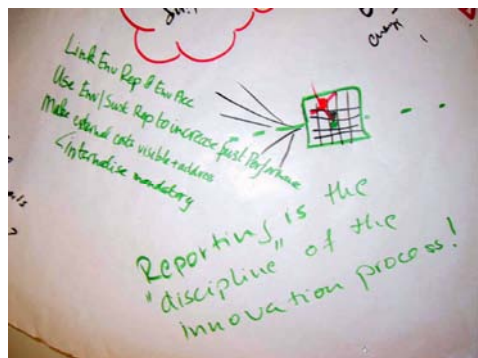 Link Env Rep & Env Acc
Use Env/Sust Rep to increase Sust Performance
Make external costs visible + address
<internalise mandatory
Reporting is the
"discipline" of the
innovation process!